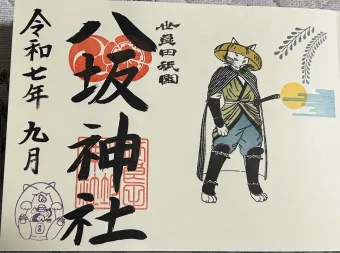 世良田祇園
八坂神社
令和七年 九月